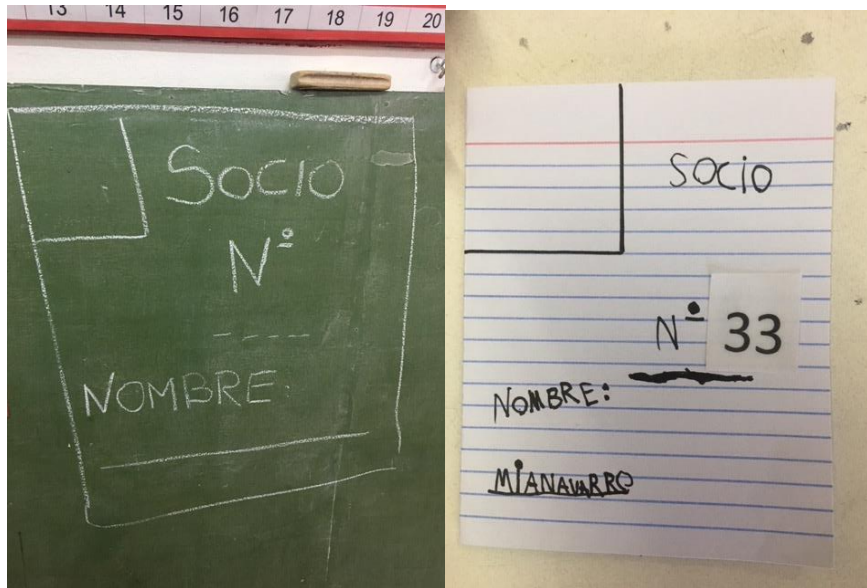 13 14 15 16 17 18 19 20
SOCIO
Nº
NOMBRE:
SOCIO
Nº 33
NOMBRE:
MIANAVARRO